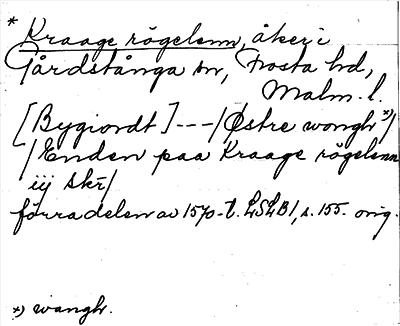 * Kraage rögelsnn, åker i
Gårdstånga sn, Frosta hd,
Malm. l.
[Bygiordt] --- / Østre wongh *)/
/ Enden paa Kraage rögelsnn
iij skr /
förra delen av 1570-t. LSLB1, s. 155. orig.
*) wangh.